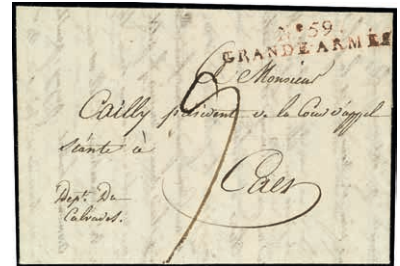 N° 59.
GRANDE ARMÉE
A Monsieur
Cailly président de la Cour d'appel
séante à
Caen
Dept. Du
Calvados.